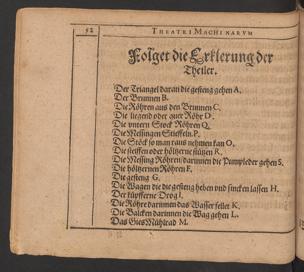 52 THEATRI MACHINARVM
Folget die Erklerung der
Theiler.
Der Triangel daran die gesteng gehen A.
Der Brunnen B.
Die Röhren aus den Brunnen C.
Die liegend oder quer Röhr D.
Die vntern Stock Röhren Q.
Die Messingen Stieffeln. P.
Die Stöck so man raus nehmen kan O.
Die steiffen oder höltzerne stützen R.
Die Messing Röhren / darinnen die Pumpleder gehen S.
Die höltzernen Röhren F.
Die gesteng G.
Die Wagen die die gesteng heben vnd sincken lassen H.
Der küpfferne Trog I.
Die Röhre darinnen das Wasser fellet K.
Die Balcken darinnen die Wag gehen L.
Das Gies Mühlrad M.